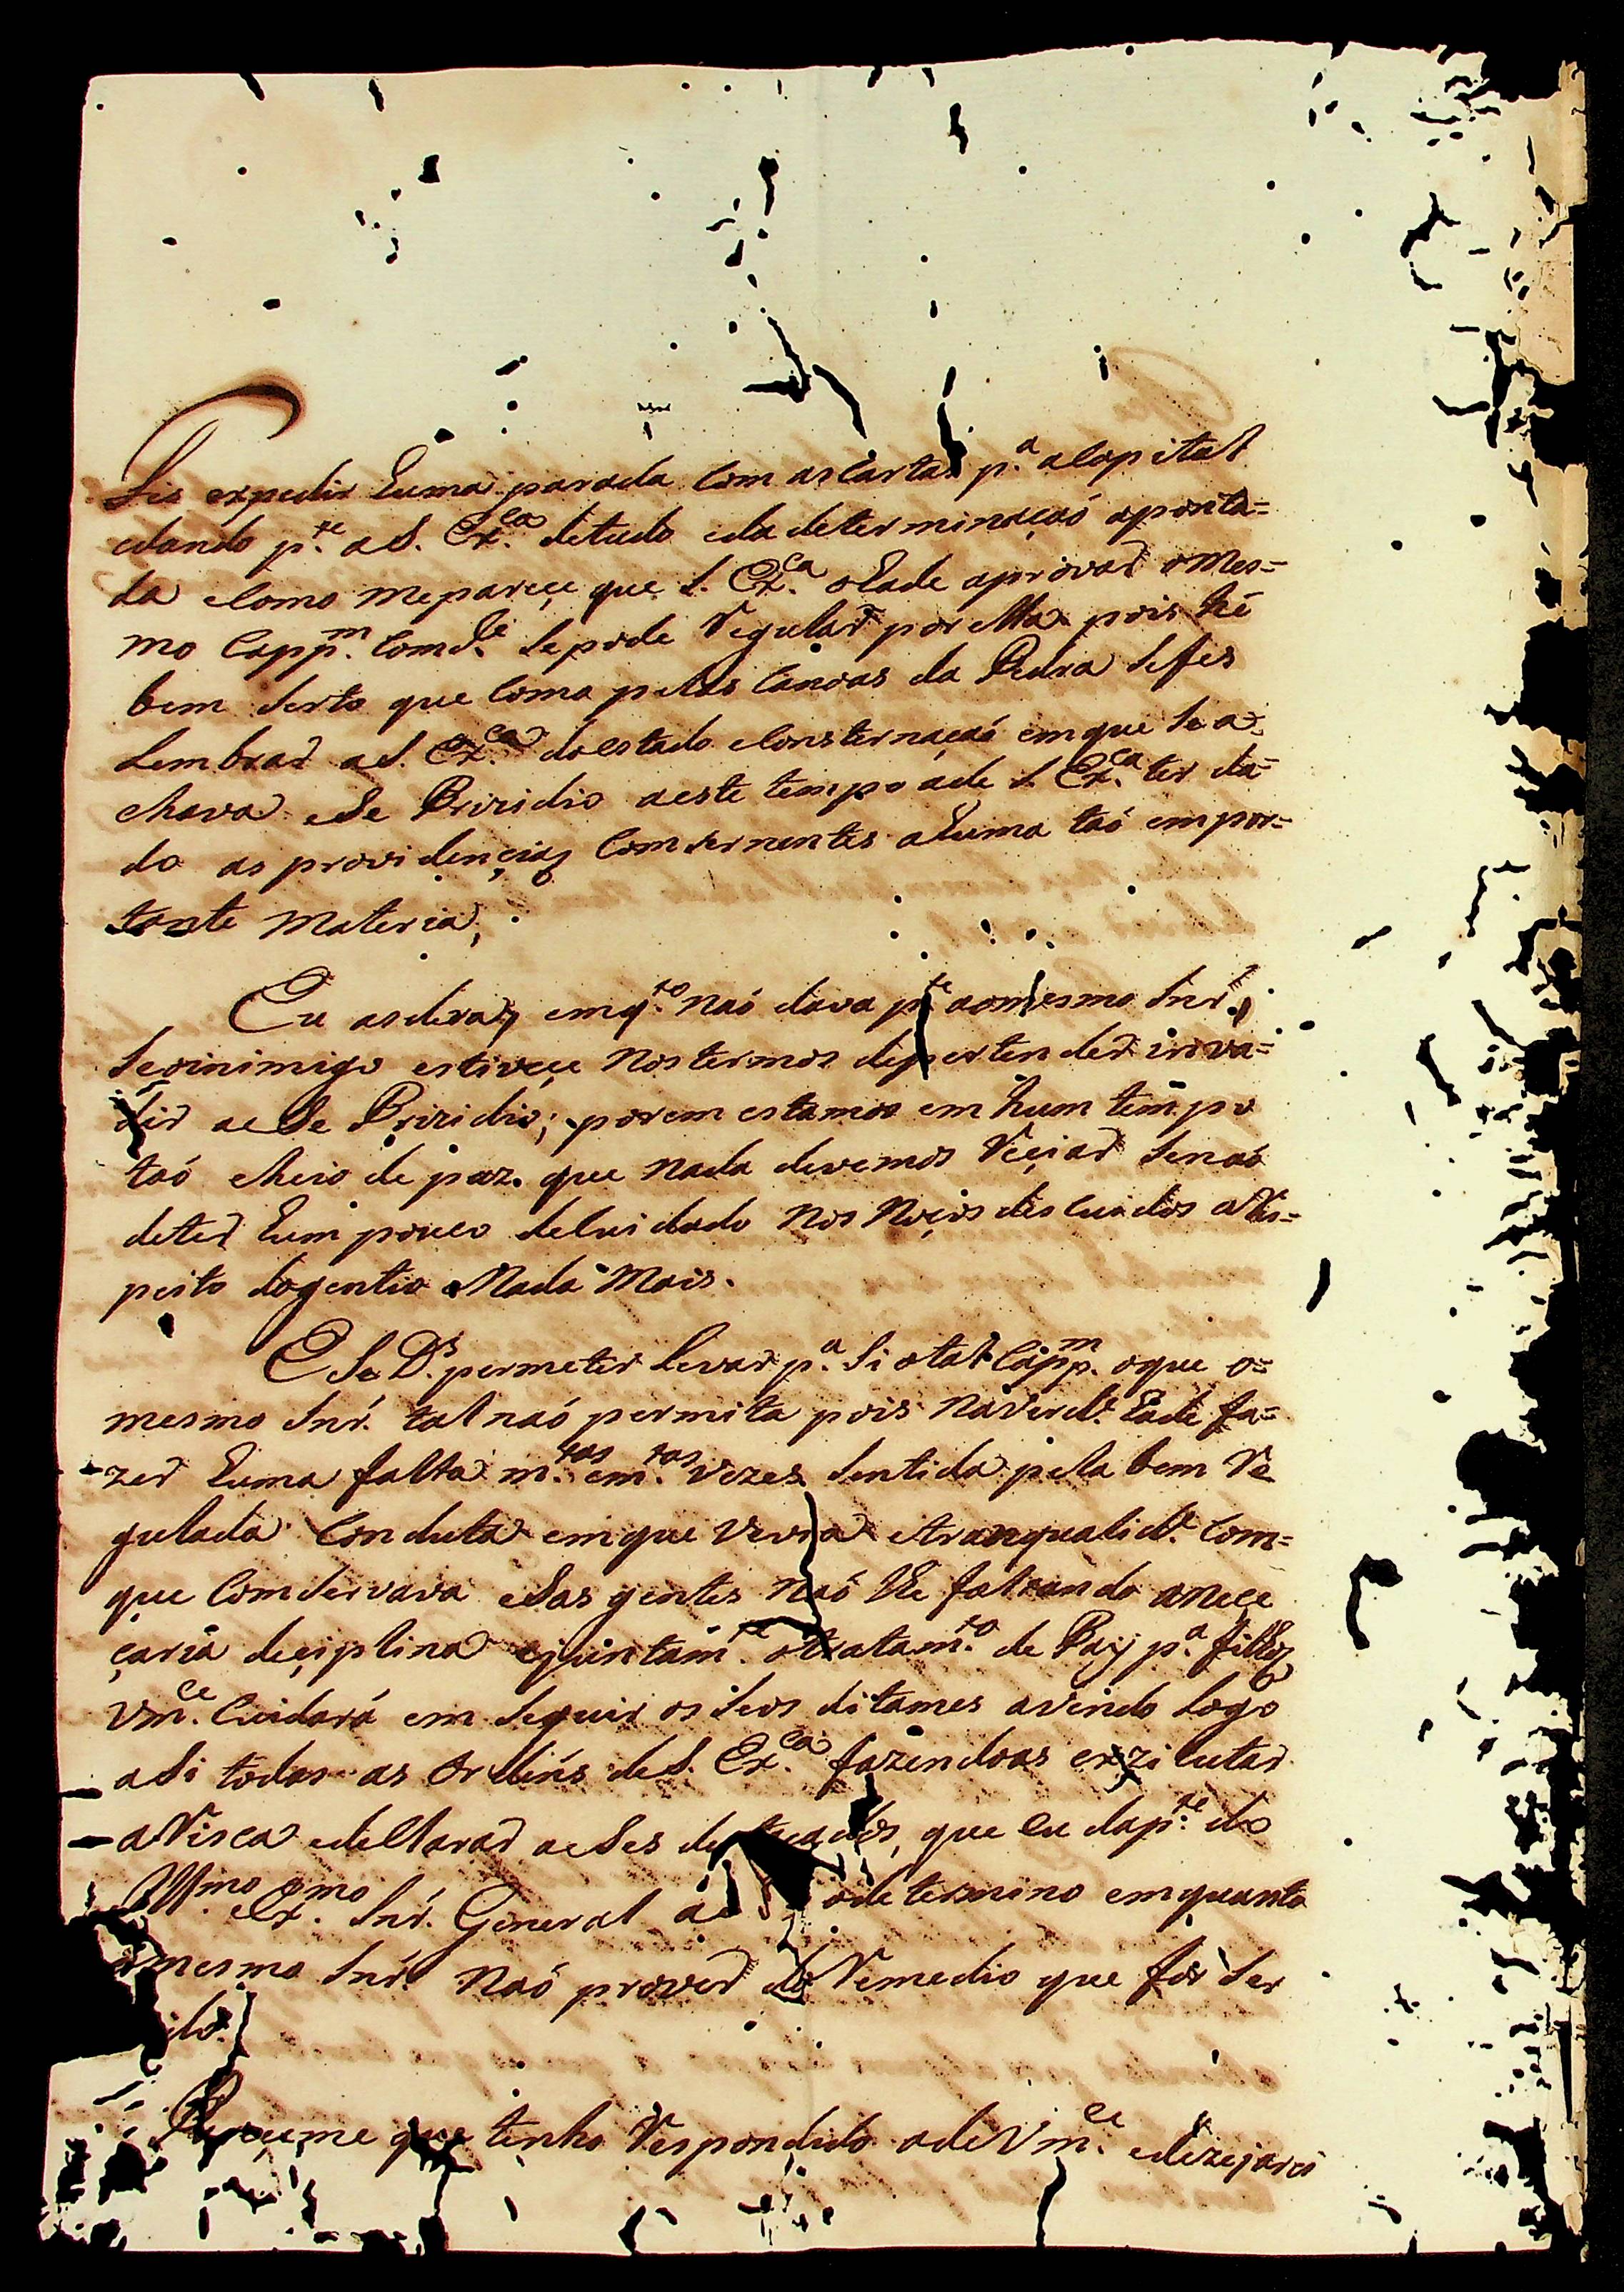 Fis expedir huma parada Com as Cartas p.ª a Capital
dando p.te a S. Ex.ca de tudo e da determinaçaõ aponta=
da e Como me pareçe que S. Ex.ca o hade aprovar o mes=
mo Capp.m Com.de se pode Regular por ella pois hé
bem Serto que Como pelas Canoas da Pedra se fes
Lembrar a S. Ex.ca do estado e Consternaçaõ em que se a=
chava ese Prizidio a este tempo ade S. Ex.ca ter da=
do as providençias Comsernentes a huma taõ empor=
tante materia;
Eu as dera, emq.to naõ dava p.te ao mesmo Snr.
Se o inimigo estiveçe nos termos de pertender inva=
dir a ese Prizidio; porem estamos em hum tempo
taõ cheio de paz. que nada devemos Reçiar Senaõ
de ter hum pouco de Cuidado nos noços descuidos a Res=
peito do gentio e Nada Mais.
E Se D.s permeter Levar p.ª Si o tal Capp.m o que o=
mesmo Snr. tal naõ permita pois na verd.e hade fa=
zer huma falta m.tas e m.tas vezes Sentida pela bem Re
gulada Conduta em que vevia e tranqualid.e Com=
que Comservava esas gentes naõ lhe faltando a neçe
çaria deçiplina e juntam.te o tratam.to de Pay p.ª filhos
Vm.ce Cuidará em Seguir os Seos ditames avendo Logo
a Si todas as Ordens de S. Ex.ca fazendoas exzicutar
a Risca e deClarar a eses destacados, que eu da p.te do
Ill.mo Ex.mo Snr. General o determino emquanto
o mesmo Snr. Naõ prover do Remedio que for Ser
ido.
Pareçeme que tenho Respondido a de Vm.ce e dezejarei